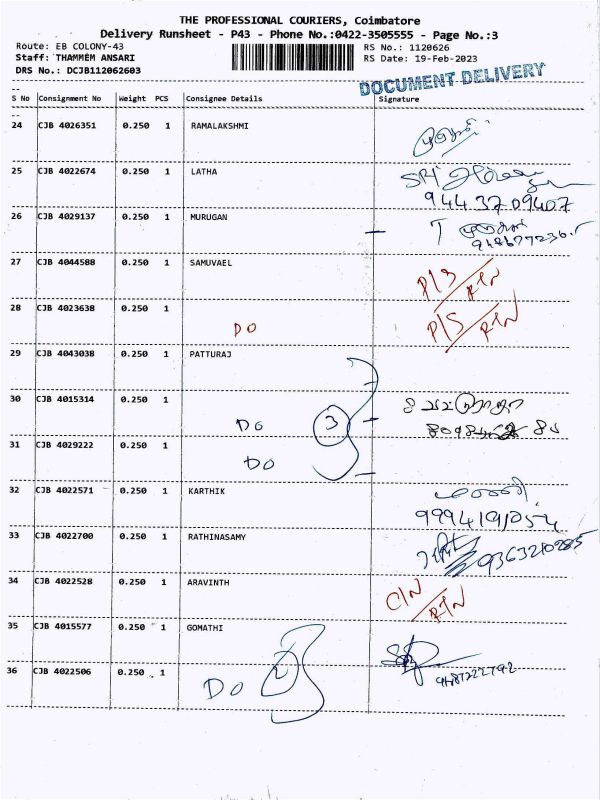 THE PROFESSIONAL COURIERS, Coimbatore
Delivery Runsheet - P43 - Phone No.:0422-3505555 - Page No.:3
Route: EB COLONY-43 RS No.: 1120626
Staff: THAMMEM ANSARI RS Date: 19-Feb-2023
DRS No.: DCJB112062603
DOCUMENT DELIVERY
--
S No Consignment No Weight PCS Consignee Details Signature
--
24 CJB 4026351 0.250 1 RAMALAKSHMI
25 CJB 4022674 0.250 1 LATHA
9443709407
26 CJB 4029137 0.250 1 MURUGAN
27 CJB 4044588 0.250 1 SAMUVAEL
RTN
28 CJB 4023638 0.250 1
DO P/S RTN
29 CJB 4043038 0.250 1 PATTURAJ
30 CJB 4015314 0.250 1
DO 3
31 CJB 4029222 0.250 1
DO
32 CJB 4022571 0.250 1 KARTHIK
33 CJB 4022700 0.250 1 RATHINASAMY
9363210285
34 CJB 4022528 0.250 1 ARAVINTH
RTN
35 CJB 4015577 0.250 1 GOMATHI
36 CJB 4022506 0.250 1
DO 2